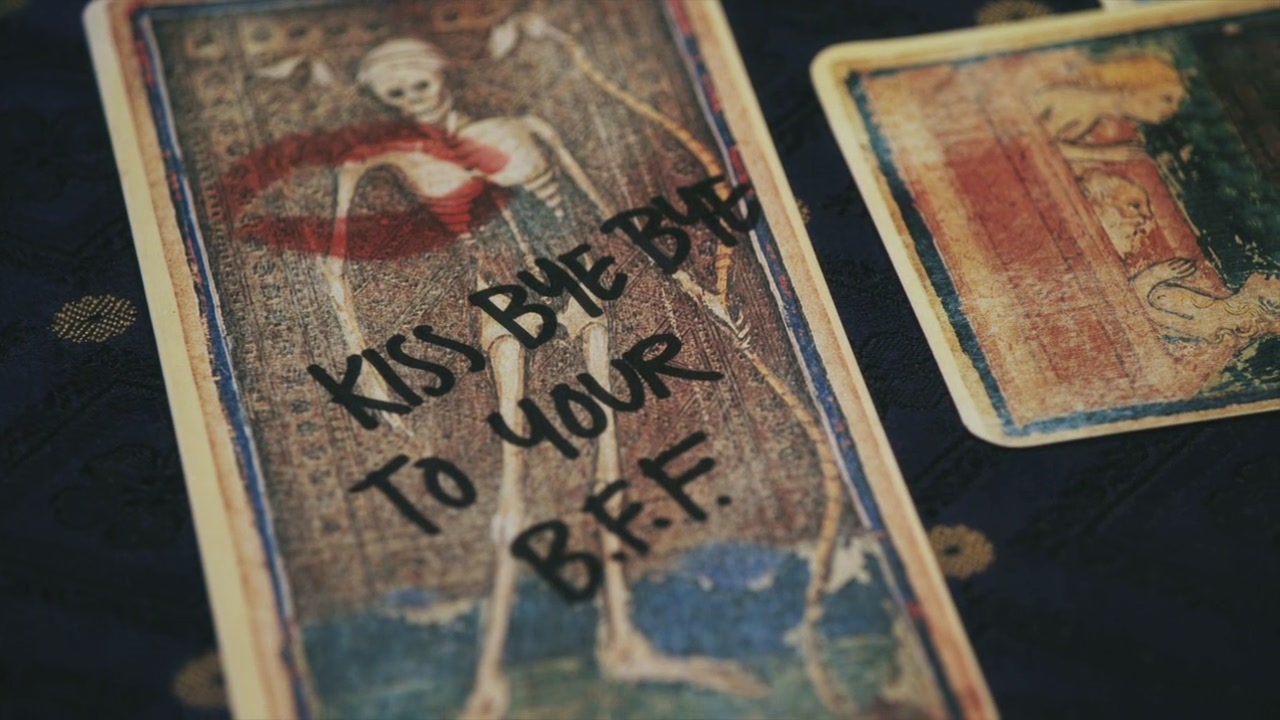 KISS BYE BYE
TO YOUR
B.F.F.